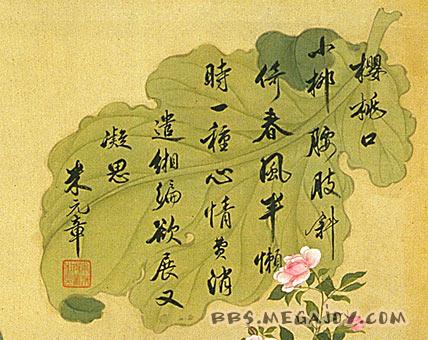 櫻桃口
小柳腰肢斜
倚春風半懶
時一種心情費消
遣緗編欲展又
凝思
米元章
BBS.MEGAJOY.COM